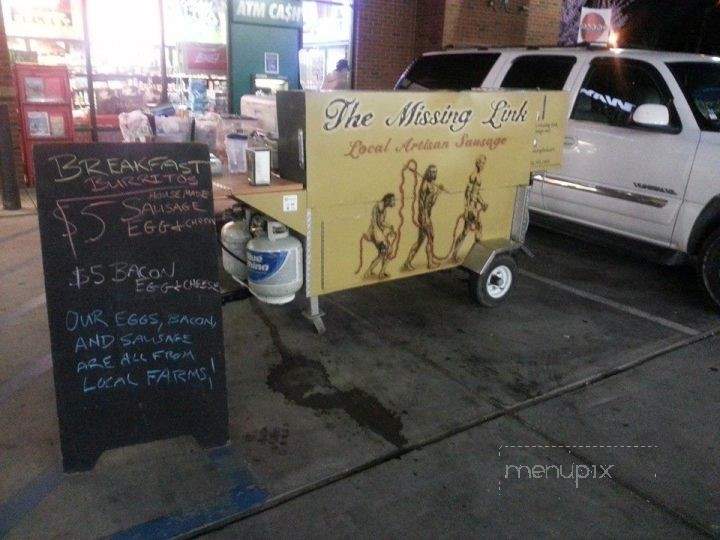 ATM CA$H
The Missing Link
Local Artisan Sausage
BREAKFAST
BURRITOS
HOUSEMADE
$5 SAUSAGE
EGG & CHEESE
$5 BACON
EGG & CHEESE
OUR EGGS, BACON,
AND SAUSAGE
ARE ALL FROM
LOCAL FARMS!
Blue
Rhino
menupix